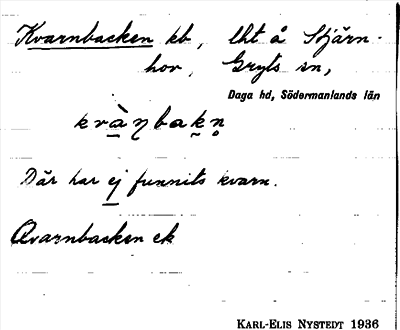 Kvarnbacken kb, lht å Stjärn-
hov, Gryts sn,
Daga hd, Södermanlands län
kvàṇbakn̥
Där har ej funnits kvarn.
Qvarnbacken ek
KARL-ELIS NYSTEDT 1936